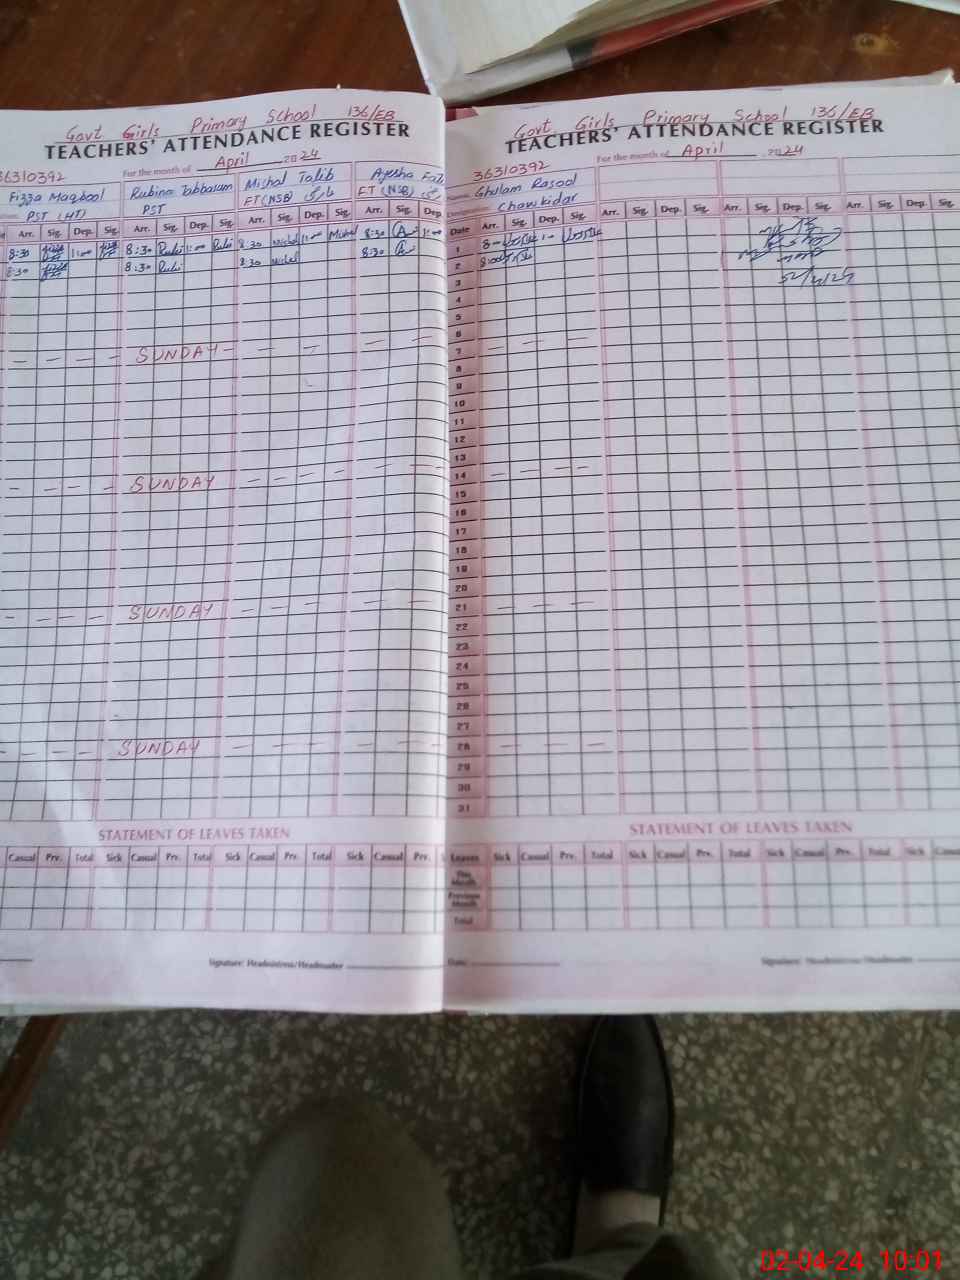 Govt Girls Primary School 136/EB
TEACHERS' ATTENDANCE REGISTER
36310392 For the month of April 2024
Fizza Maqbool Rubina Tabbasum Mishal Talib Ayesha
PST (HT) PST FT (NSB) FT (NSB)
Arr. Sig. Dep. Sig. Arr. Sig. Dep. Sig. Arr. Sig. Dep. Sig. Arr. Sig. Dep.
8:30 1:00 8:30 Rubi 1:00 Rubi 8:30 Mishal 1:00 Mishal 8:30 1:00
8:30 8:30 Rubi 8:30 Mishal 8:30
— — — — SUNDAY — — — — —
— — — — SUNDAY — — — — — —
— — — — SUNDAY — — — — — —
— — — — SUNDAY — — — — —
STATEMENT OF LEAVES TAKEN
Casual Prv. Total Sick Casual Prv. Total Sick Casual Prv. Total Sick Casual Prv.
Signature: Headmistress/Headmaster
Govt. Girls Primary School 136/EB
TEACHERS' ATTENDANCE REGISTER
36310392 For the month of April , 2024
Name Ghulam Rasool
Designation Chawkidar
Date Arr. Sig. Dep. Sig. Arr. Sig. Dep. Sig. Arr. Sig. Dep. Sig. Arr. Sig. Dep. Sig.
1
2
3
4
5
6
7 — — —
8
9
10
11
12
13
14 — — — —
15
16
17
18
19
20
21 — — —
22
23
24
25
26
27
28 — —
29
30
31
STATEMENT OF LEAVES TAKEN
Leaves Sick Casual Prv. Total Sick Casual Prv. Total Sick Casual Prv. Total Sick Casual
This Month
Previous Month
Total
Date: Signature: Headmistress/Headmaster
02-04-24 10:01